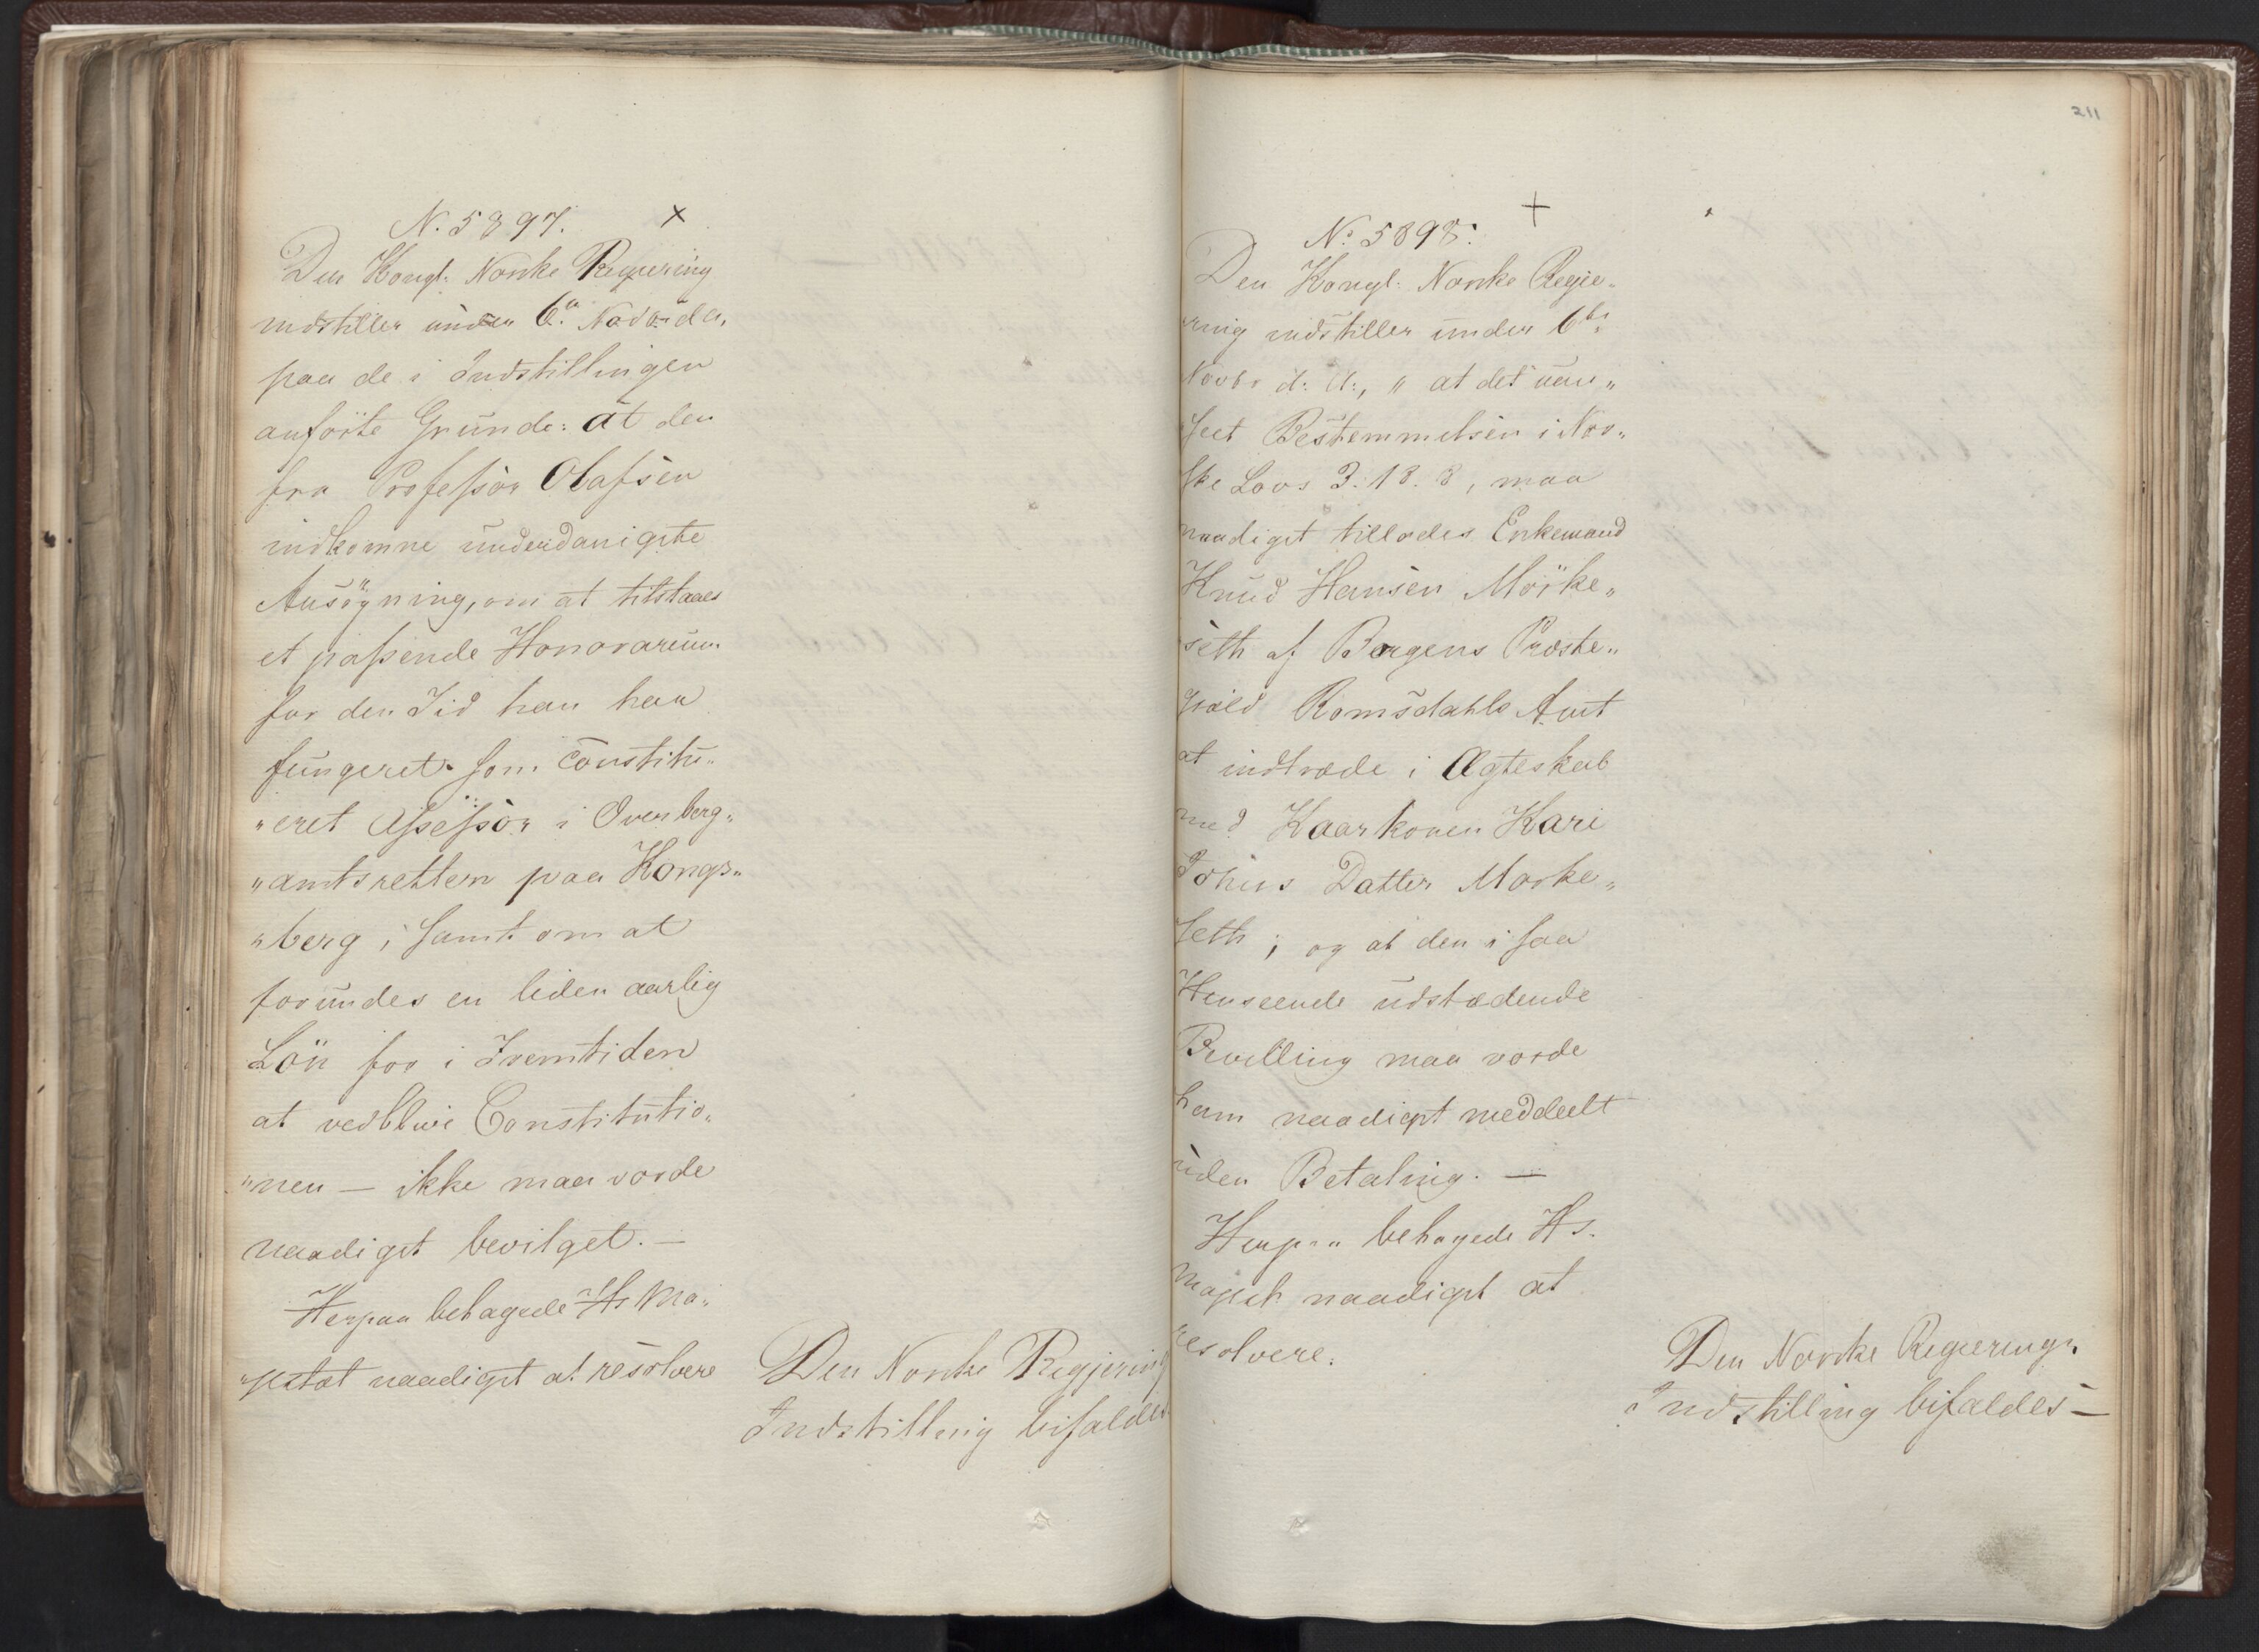 N. 5897. ×
Den Kongl: Norske Regiering
indstiller under 6te Nov. d. a.
paa de i Indstillingen
anförte Grunde: at den
fra Professor Olafsen
indkomne underdanigste
Ansögning, om at tilstaaes
et passende Honorarium
for den Tid han har
fungeret som constitu„
„eret Assessor i Overberg„
„amtsretten paa Kongs„
„berg; samt om at
forundes en liden aarlig
Lön for i Fremtiden
at vedblive Constitutio„
„nen — ikke maa vorde
naadigst bevilget. —
Herpaa behagede Hs Ma„
„jestæt naadigst at resolvere
Den Norske Regjering
Indstilling bifaldes
211
No 5898. +
Den Kongl: Norske Regie„
ring indstiller under 6te
Novbr d: A:, „ at det uan„
seet Bestemmelsen i Nor„
ske Lovs 3. 18. 8, maa
naadigst tillades Enkemand
Knud Hansen Mörke„
seth af Borgens Præste„
gield Romsdahls Amt
at indtræde i Ægteskab
med Kaarkonen Kari
Johns Datter Morke„
seth; og at den i saa
Henseende udstædende
Bevilling maa vorde
ham naadigst meddeelt
uden Betaling. —
Herpaa behagede Hs.
Majest: naadigst at
resolvere.
Den Norske Regierings
Indstilling bifaldes —